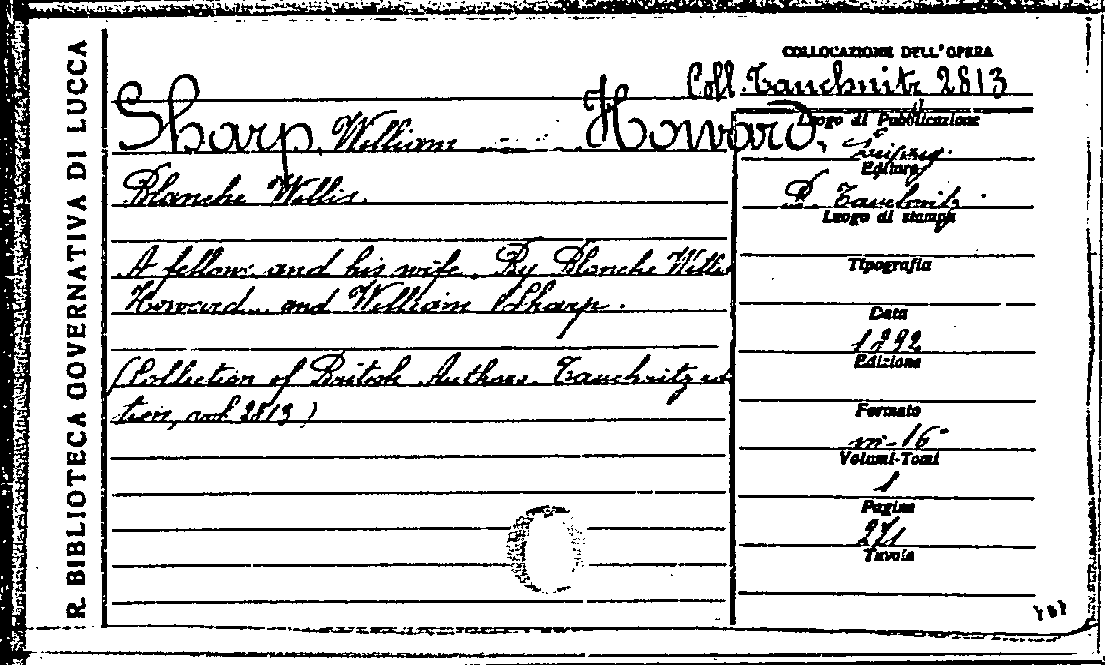 R. BIBLIOTECA GOVERNATIVA DI LUCCA
COLLOCAZIONE DELL'OPERA
Coll. Tauchnitz 2813
Sharp, William Howard,
Blanche Willis.
A fellow and his wife. By Blanche Willis
Howard and William Sharp.
(Collection of British Authors. Tauchnitz edi
tion, vol 2813)
Luogo di Pubblicazione
Leipzig.
Editore
B. Tauchnitz.
Luogo di stampa
Tipografia
Data
1892
Edizione
Formato
in-16°
Volumi-Tomi
1
Pagine
271
Tavole